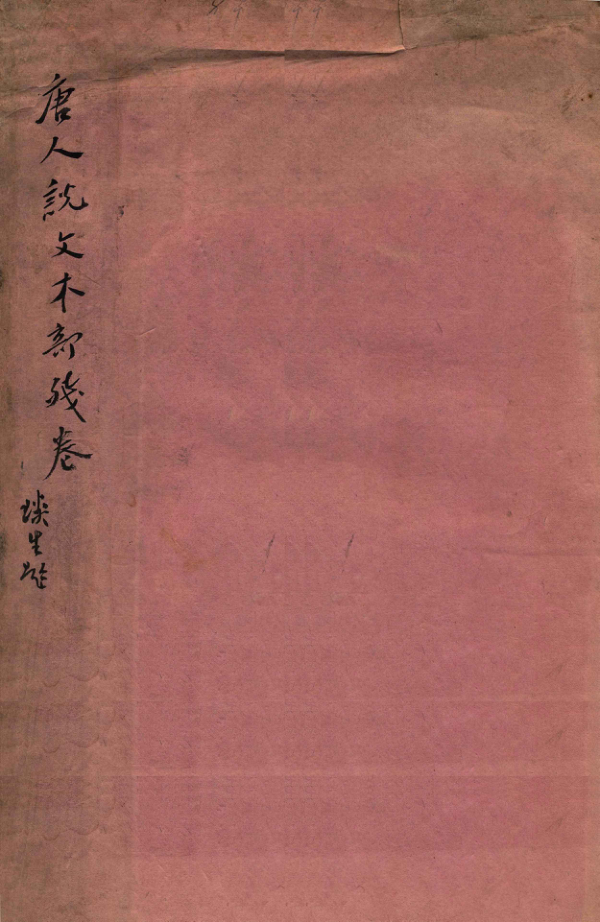 唐人説文木部殘卷
燧生題